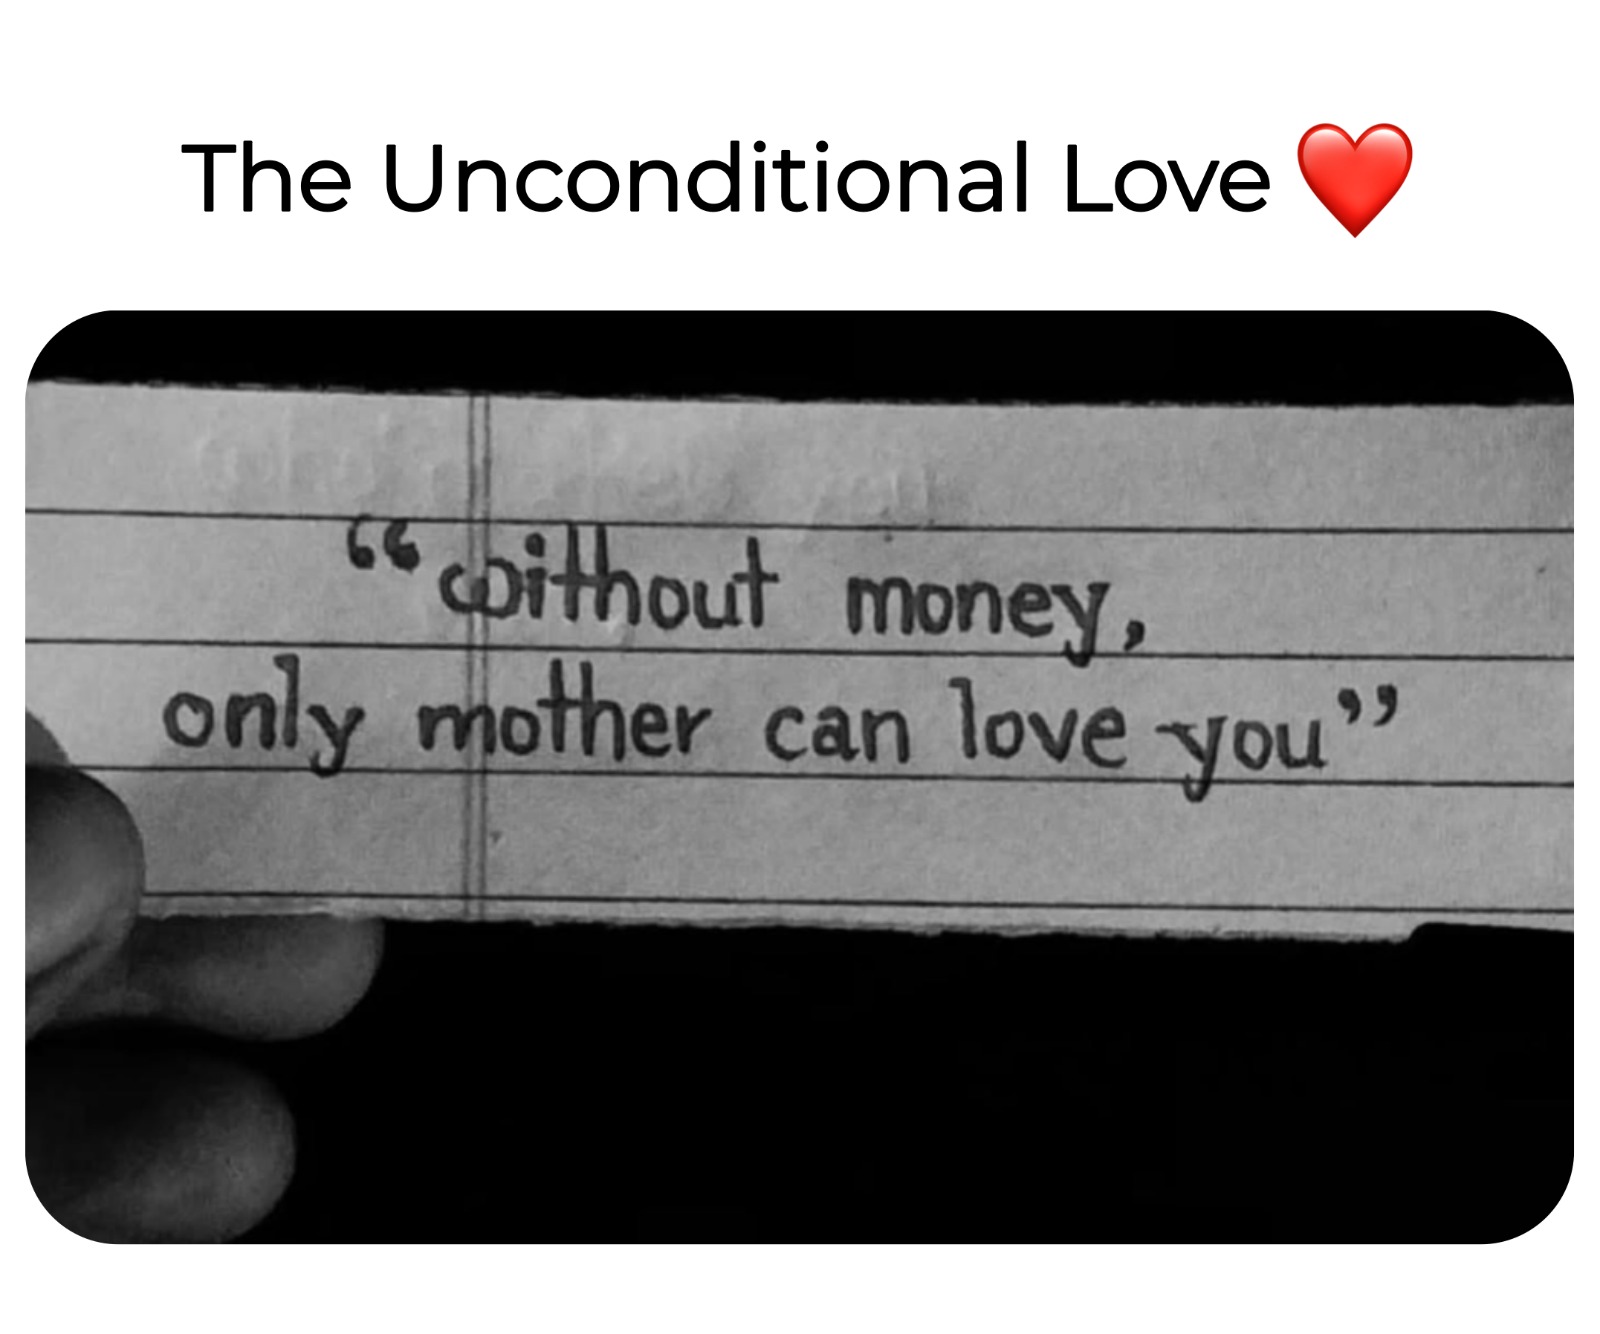 The Unconditional Love ❤️
“without money,
only mother can love you”